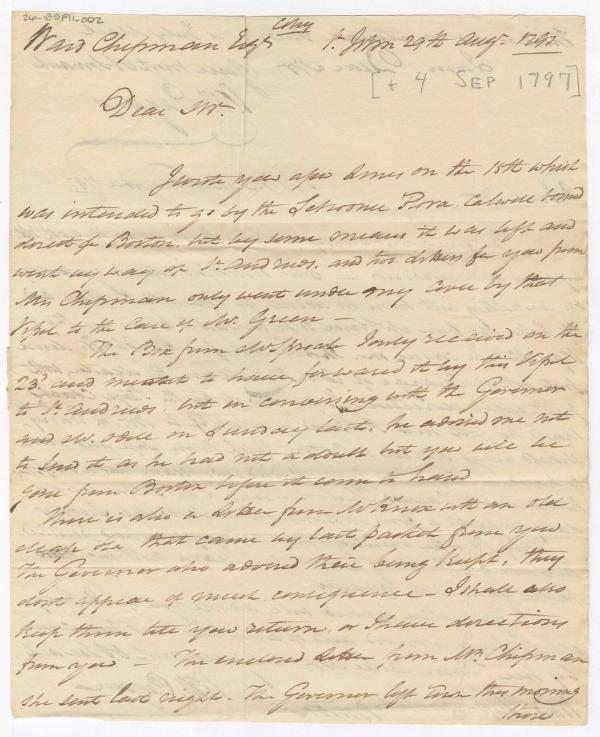 26-SSF11-002
Copy
Ward Chipman Esqr St. John 29th Augt. 1797
[+ 4 SEP 1797]
Dear Sir.
I wrote you a few lines on the 15th which
was intended to go by the Schooner Flora. Calwell bound
direct for Boston. but by some means it was left and
went by way of St. Andrews. and two Letters for you from
Mrs Chipman only went under my cover by that
Vessel to the Care of Mr. Green —
The Box from Mr Sproat I only received on the
23d and meant to have forwarded it by this Vessel
to St. Andrews. but in conversing with the Governor
and Mr. Odell on Sunday last. he advised me not
to send it as he had not a doubt but you will be
gone from Boston before it come to hand
There is also a Letter from Mr Knox with an old
that came by last packet from you
The Governor also advised their being kept, they
dont appear of much consequence — I shall also
keep them till you return or I have directions
from you — The enclosed Letter from Mrs Chipman
she sent last night. The Governor left Town this morning
there